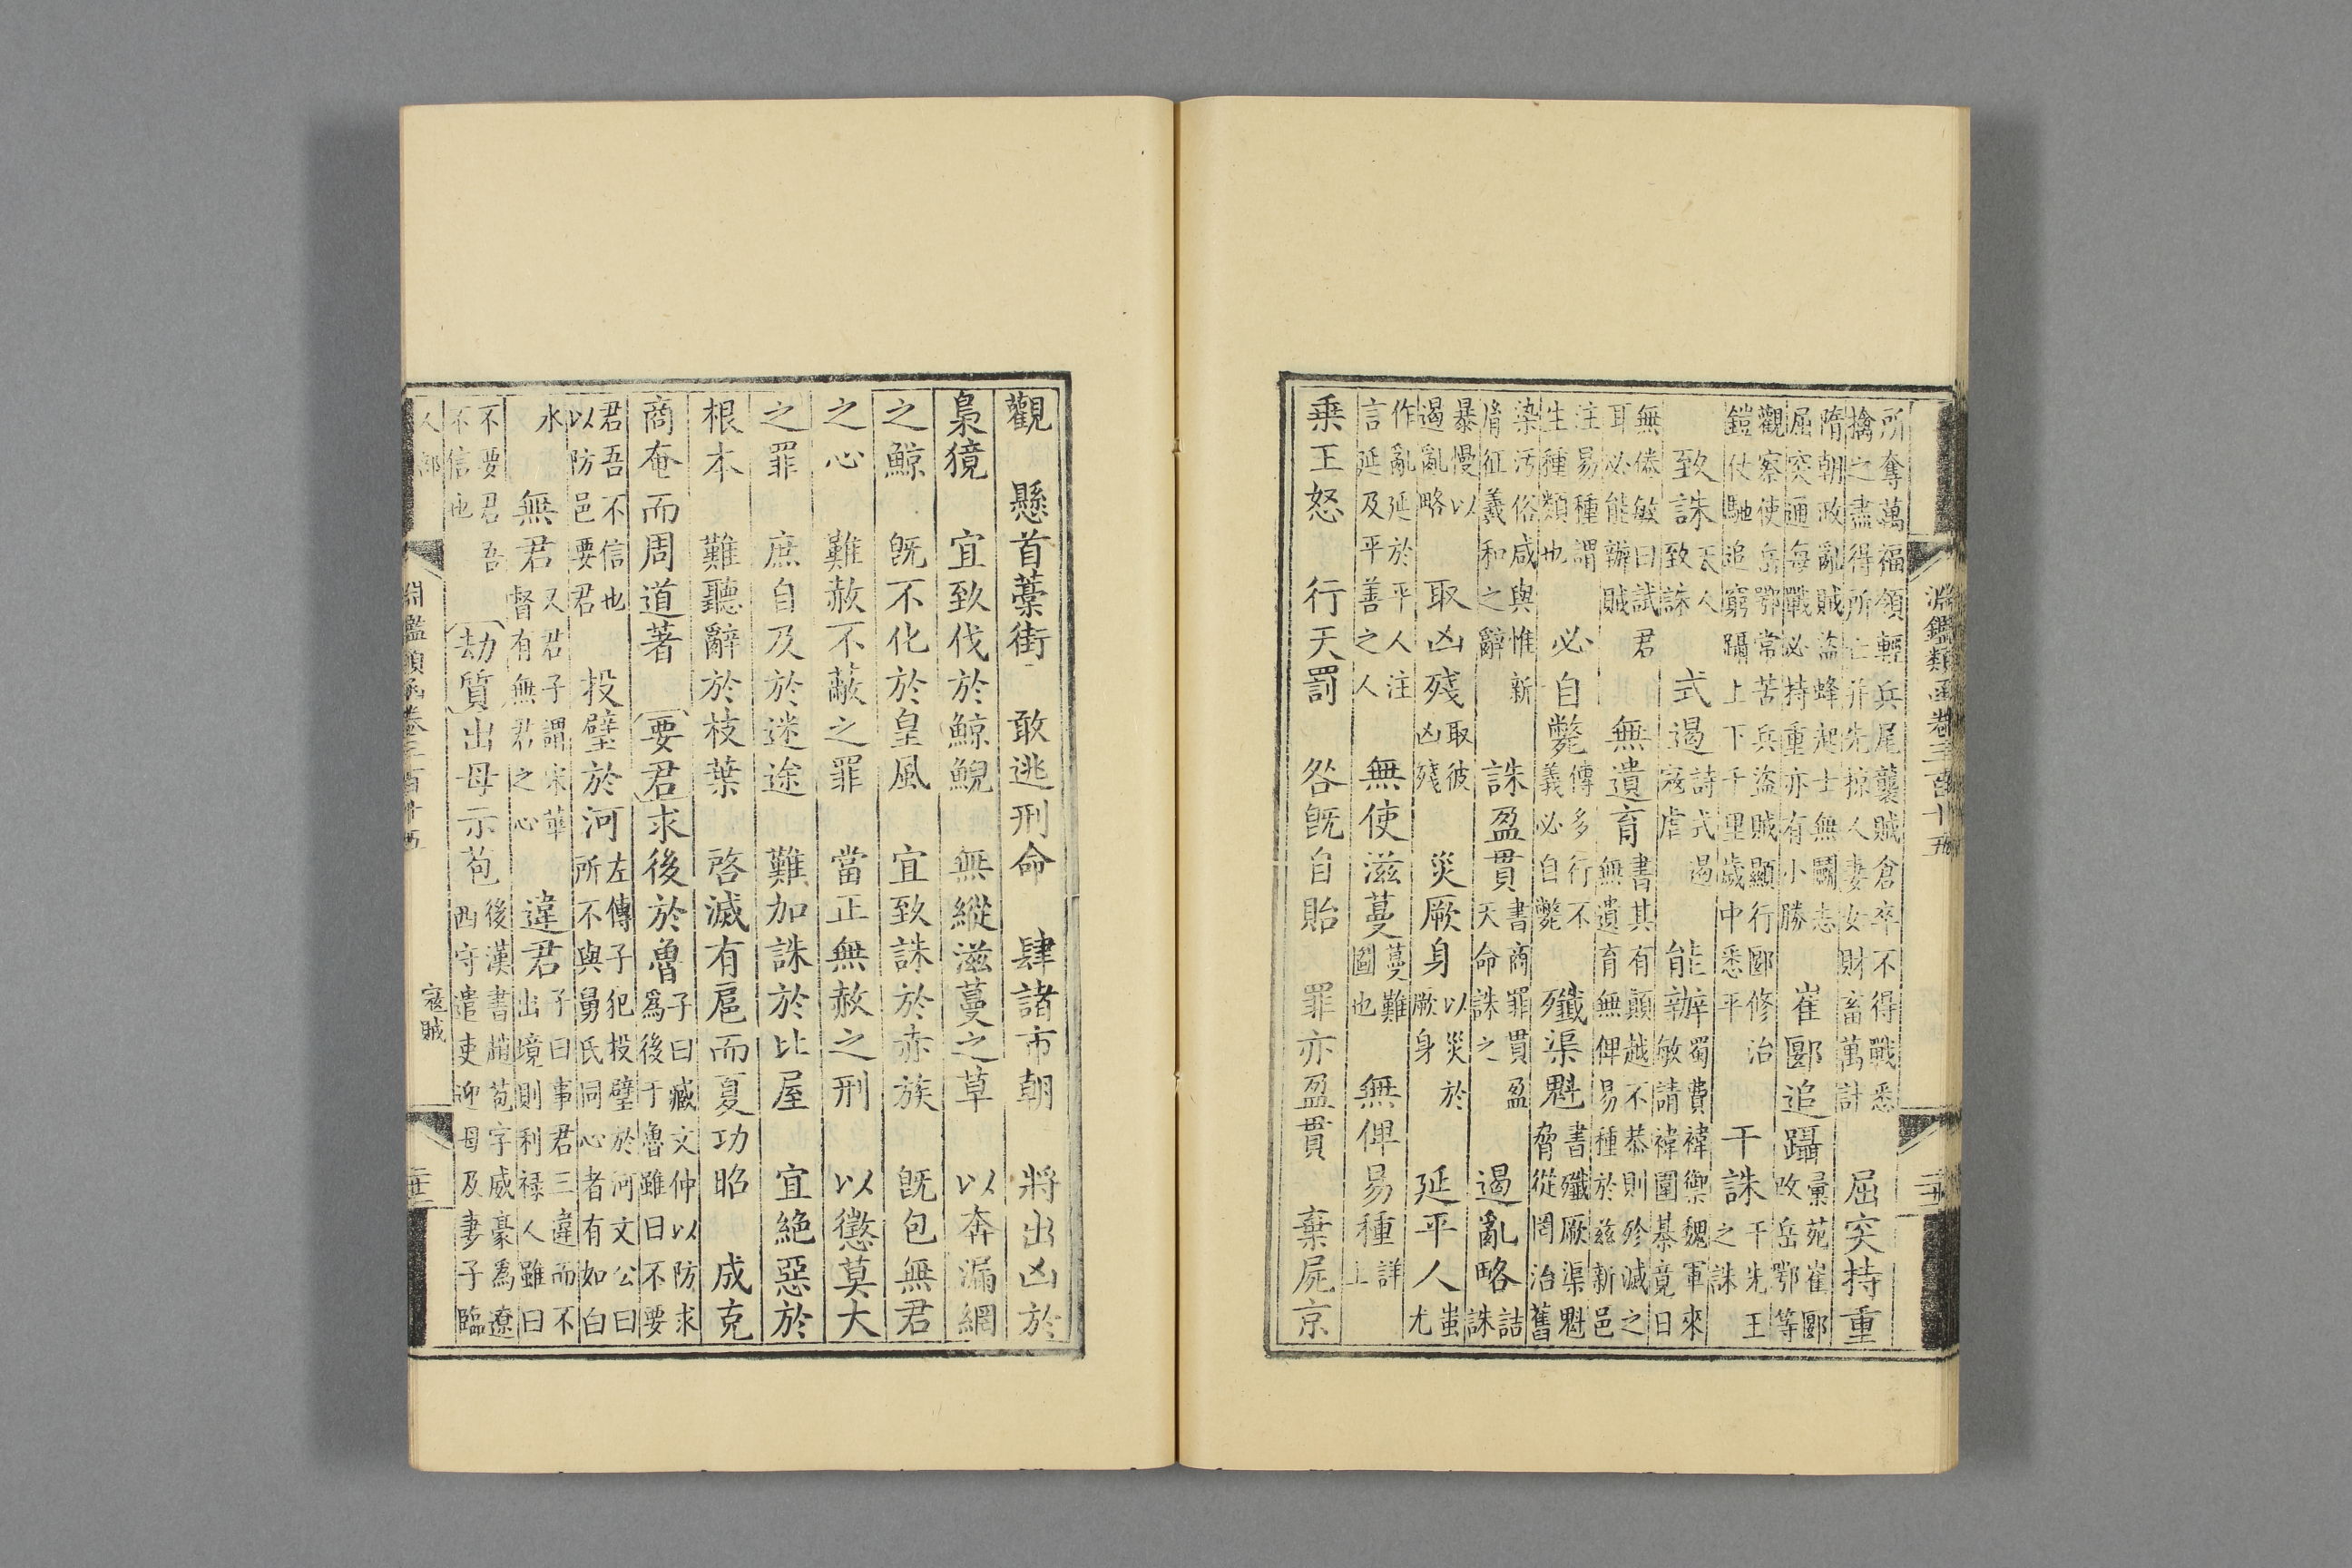 淵鑑類函卷三百十
所奪萬福領輕兵尾襲賊倉卒不得戰悉擒之盡得所亡并先掠人妻女財畜萬計 屈突持重
隋朝政亂賊盜蜂起士無鬭志屈突通每戰必持重亦有小勝 崔郾追躡 彙苑崔郾改岳鄂等
觀察使岳鄂常苦兵盜賊顯行郾修治鎧仗馳追窮躡上下千里歲中悉平 干誅 干先王之誅
致誅 天人致誅 式遏 詩式遏寇虐 能辦 蜀費禕禦魏軍來敏請禕圍棊竟日
無倦敏曰試君耳必能辦賊 無遺育 書其有顛越不恭則殄滅之無遺育無俾易種於兹新邑
注易種謂生種類也 必自斃 傳多行不義必自斃 殲渠魁 書殲厥渠魁脅從罔治舊
染污俗咸與惟新胥征義和之辭 誅盈貫 書商罪貫盈天命誅之 遏亂略 詰誅
暴慢以遏亂略 取凶殘 取彼凶殘 災厥身 以災於厥身 延平人 蚩尤
作亂延於平人注言延及平善之人 無使滋蔓 蔓難圖也 無俾易種 詳上
乗王怒 行天罰 咎旣自貽 罪亦盈貫 棄屍京
觀 懸首藁街 敢逃刑命 肆諸市朝 將出凶於
梟獍 宜致伐於鯨鯢 無縱滋蔓之草 以奔漏網
之鯨 旣不化於皇風 宜致誅於赤族 旣包無君
之心 難赦不蔽之罪 當正無赦之刑 以懲莫大
之罪 庶自及於迷途 難加誅於比屋 宜絶惡於
根本 難聽辭於枝葉 啓滅有扈而夏功昭 成克
商奄而周道著 要君 求後於魯 子曰臧文仲以防求爲後于魯雖曰不要
君吾不信也以防邑要君 投璧於河 左傳子犯投璧於河文公曰所不與舅氏同心者有如白
水 無君 又君子謂宋華督有無君之心 違君 子曰事君三違而不出境則利禄人雖曰
不要君吾不信也 劫質 出母示苞 後漢書趙苞字威豪爲遼西守遣吏迎母及妻子臨
人部
淵鑑類函卷三百十
寇賊